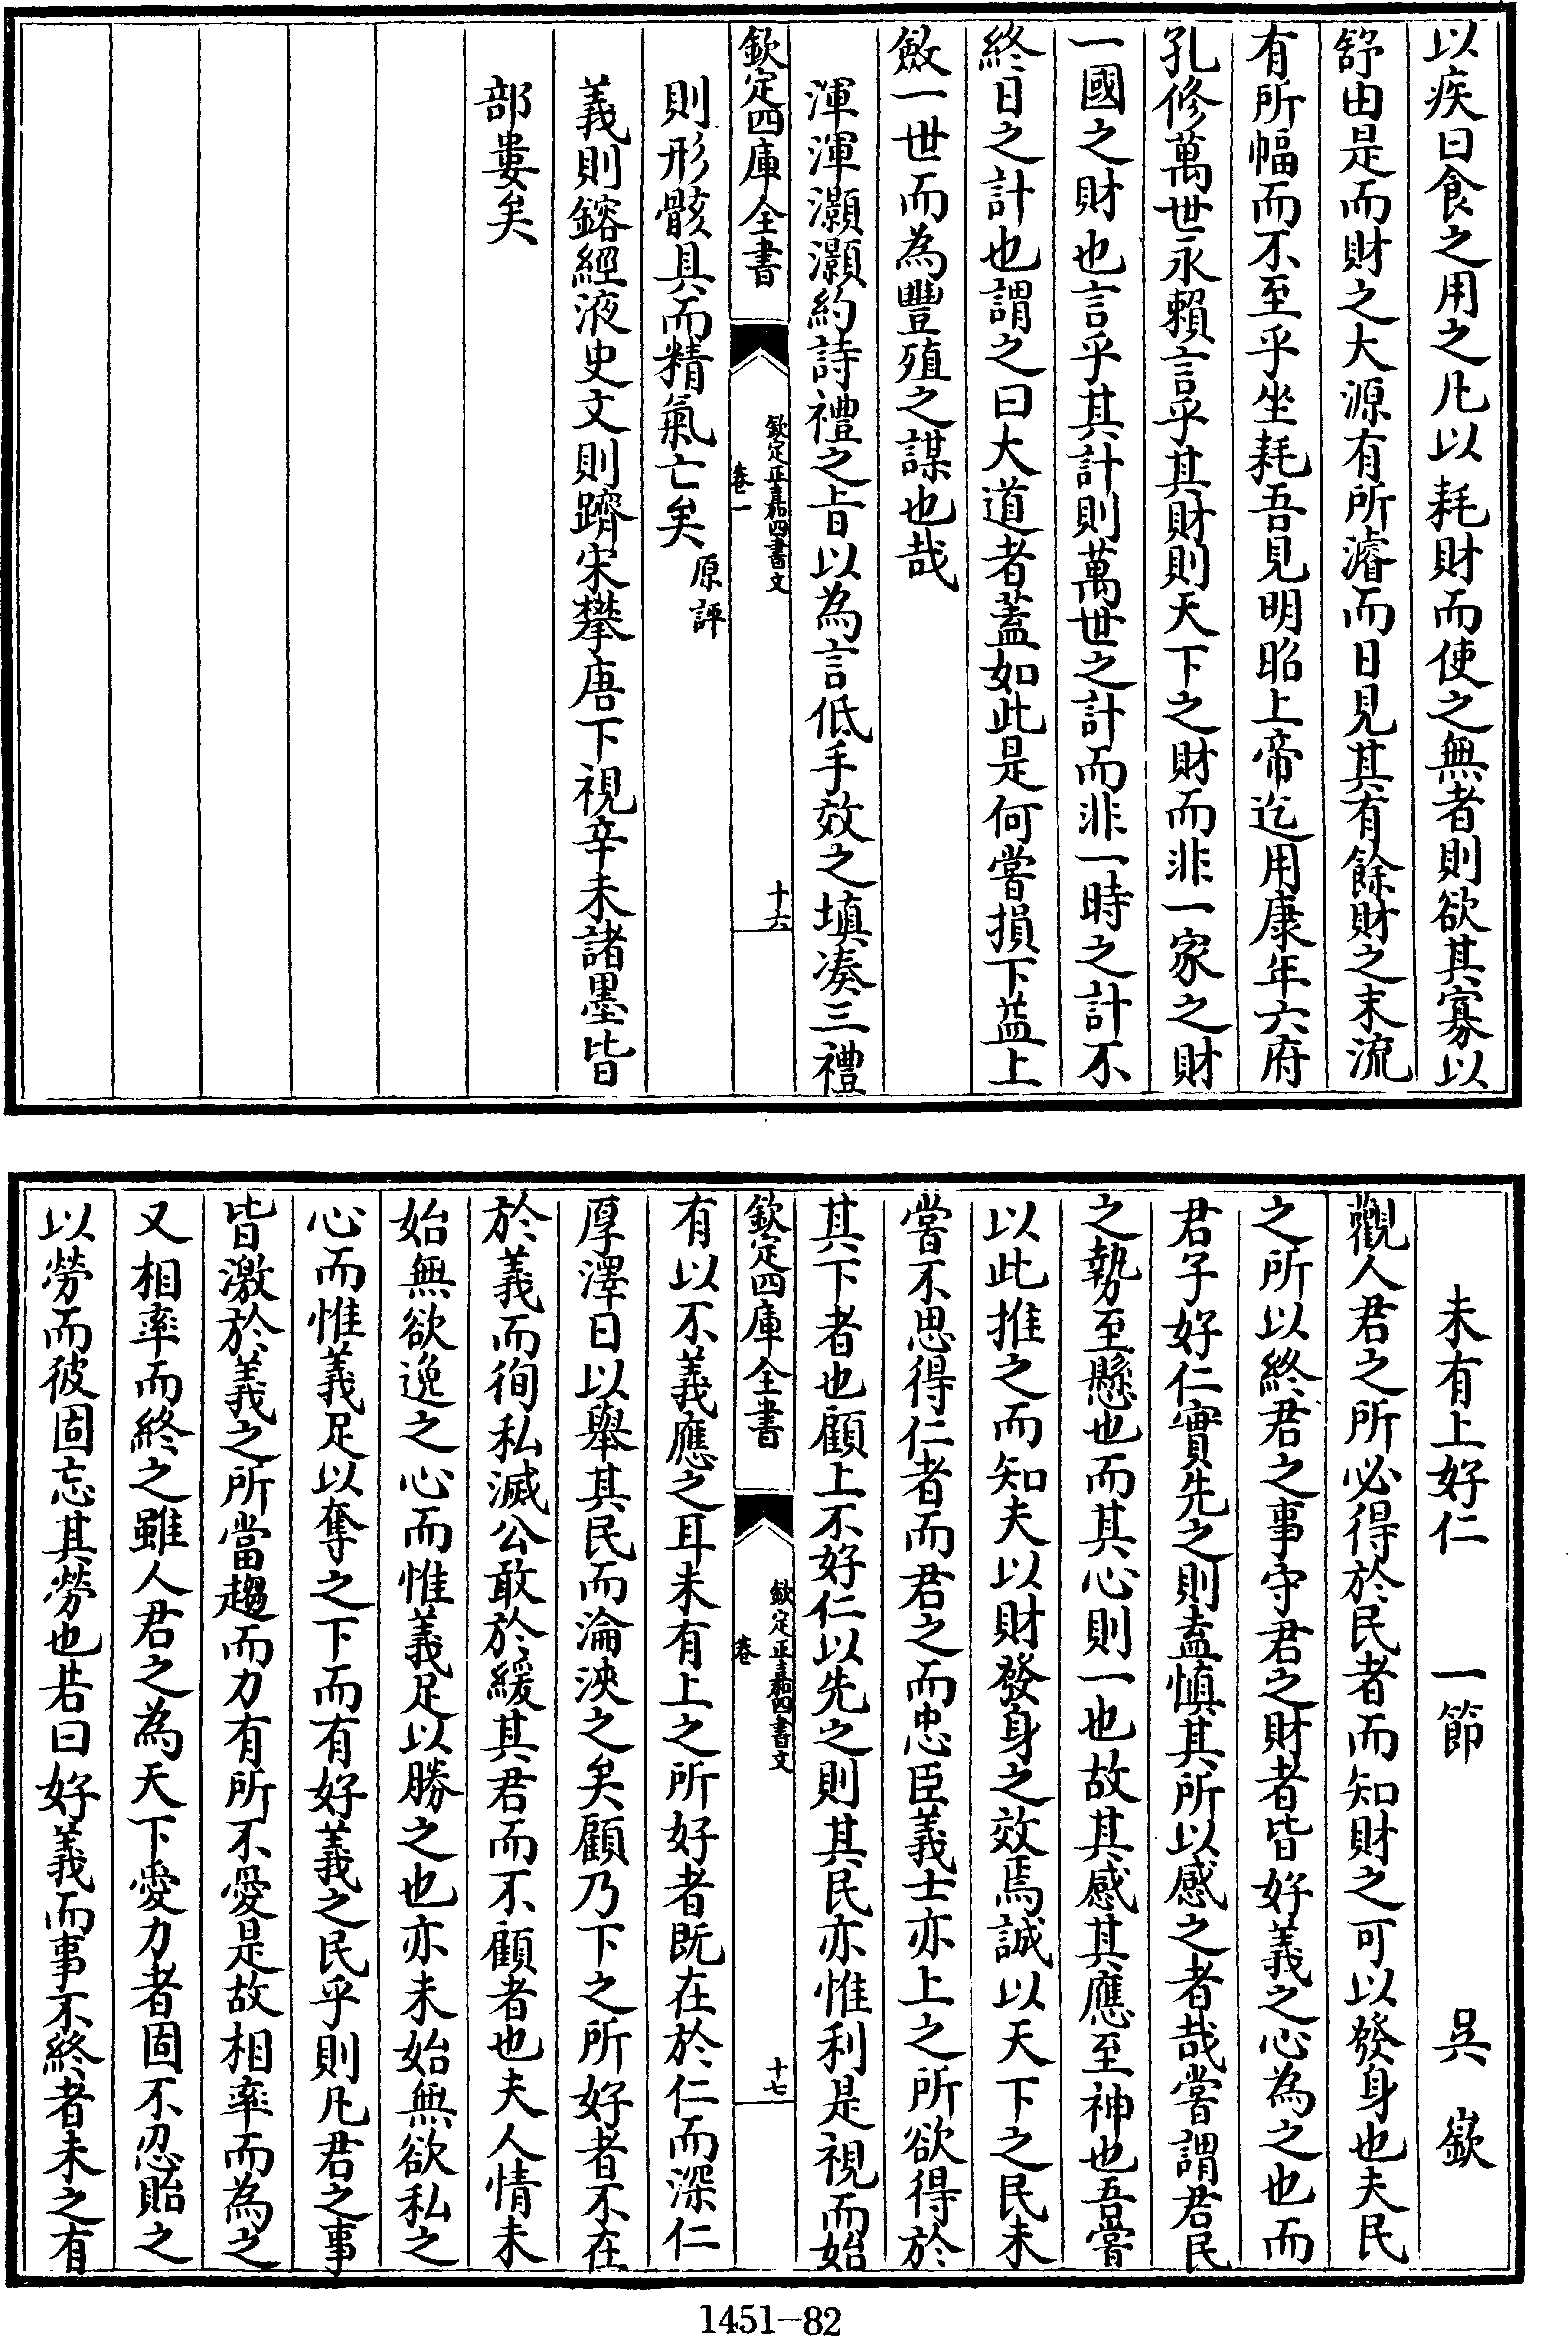 以疾曰食之用之凡以耗財而使之無者則欲其寡以
舒由是而財之大源有所濬而日見其有餘財之末流
有所幅而不至乎坐耗吾見明昭上帝迄用康年六府
孔修萬世永賴言乎其財則天下之財而非一家之財
一國之財也言乎其計則萬世之計而非一時之計不
終日之計也謂之曰大道者蓋如此是何嘗損下益上
斂一世而為豐殖之謀也哉
渾渾灝灝約詩禮之旨以為言低手效之填湊三禮
欽定四庫全書
欽定正嘉四書文
卷一
十六
則形骸具而精氣亡矣原評
義則鎔經液史文則躋宋攀唐下視辛未諸墨皆
部婁矣
未有上好仁 一節 吳嶔
觀人君之所必得於民者而知財之可以發身也夫民
之所以終君之事守君之財者皆好義之心為之也而
君子好仁實先之則盍慎其所以感之者哉嘗謂君民
之勢至懸也而其心則一也故其感其應至神也吾嘗
以此推之而知夫以財發身之效焉誠以天下之民未
嘗不思得仁者而君之而忠臣義士亦上之所欲得於
其下者也顧上不好仁以先之則其民亦惟利是視而始
欽定四庫全書
欽定正嘉四書文
卷一
十七
有以不義應之耳未有上之所好者既在於仁而深仁
厚澤日以舉其民而淪浹之矣顧乃下之所好者不在
於義而徇私滅公敢於緩其君而不顧者也夫人情未
始無欲逸之心而惟義足以勝之也亦未始無欲私之
心而惟義足以奪之下而有好義之民乎則凡君之事
皆激於義之所當趨而力有所不愛是故相率而為之
又相率而終之雖人君之為天下愛力者固不忍貽之
以勞而彼固忘其勞也若曰好義而事不終者未之有
1451-82